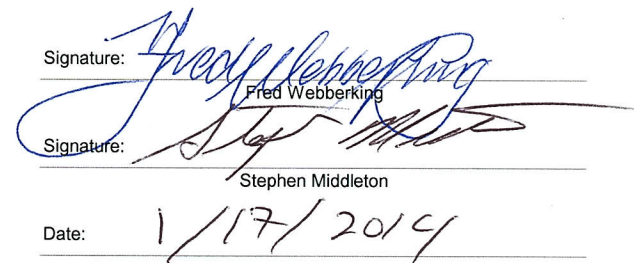 Signature: Fred Webberking
Fred Webberking
Signature:
Stephen Middleton
Date: 1/17/2014